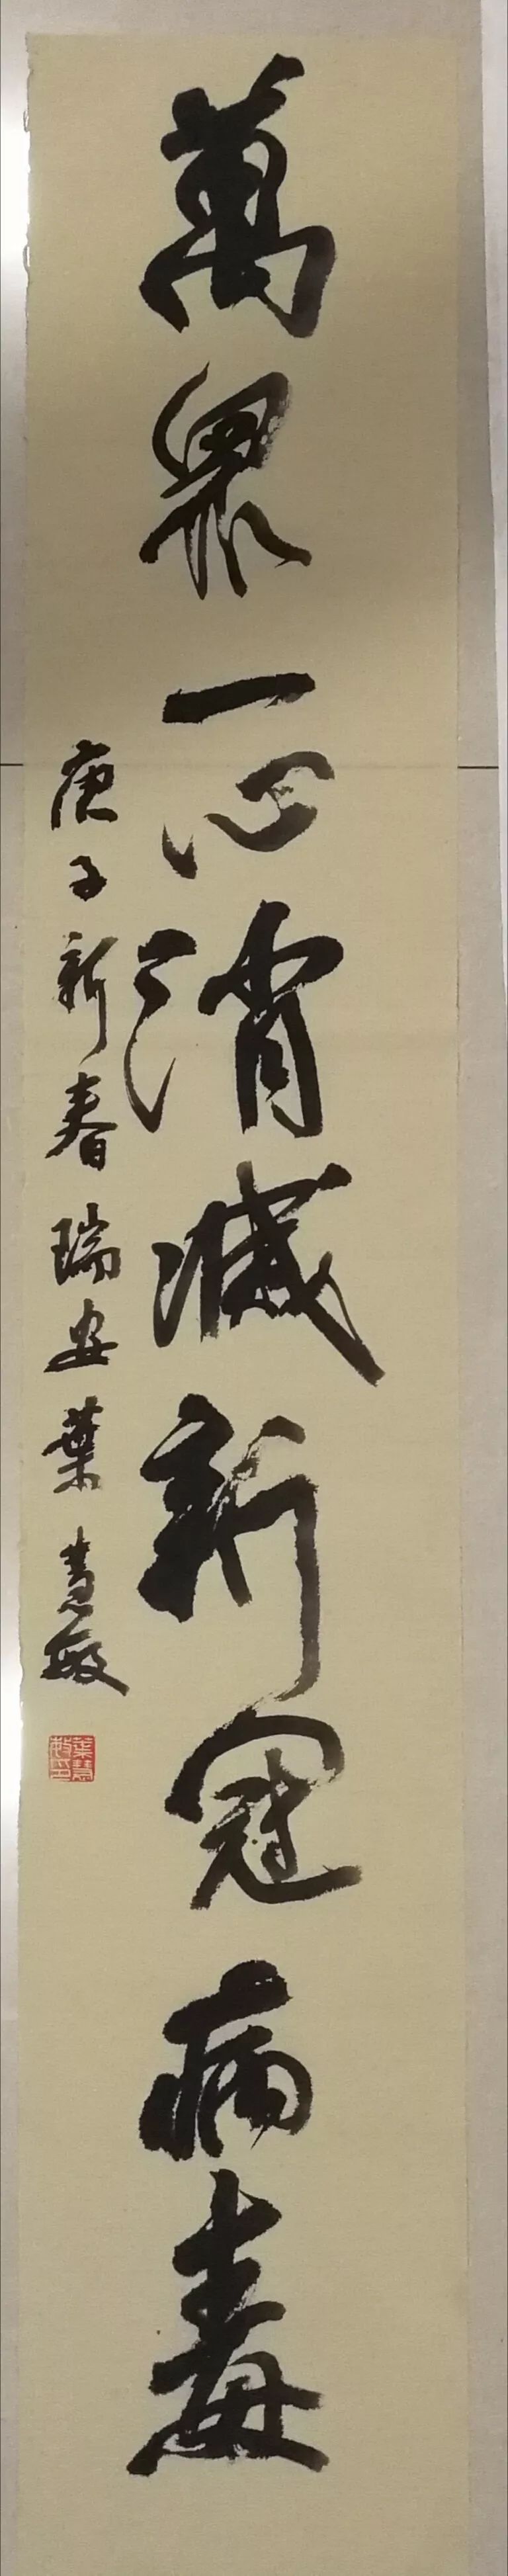 萬眾一心消滅新冠病毒
庚子新春瑞安葉慧敏
葉慧敏印